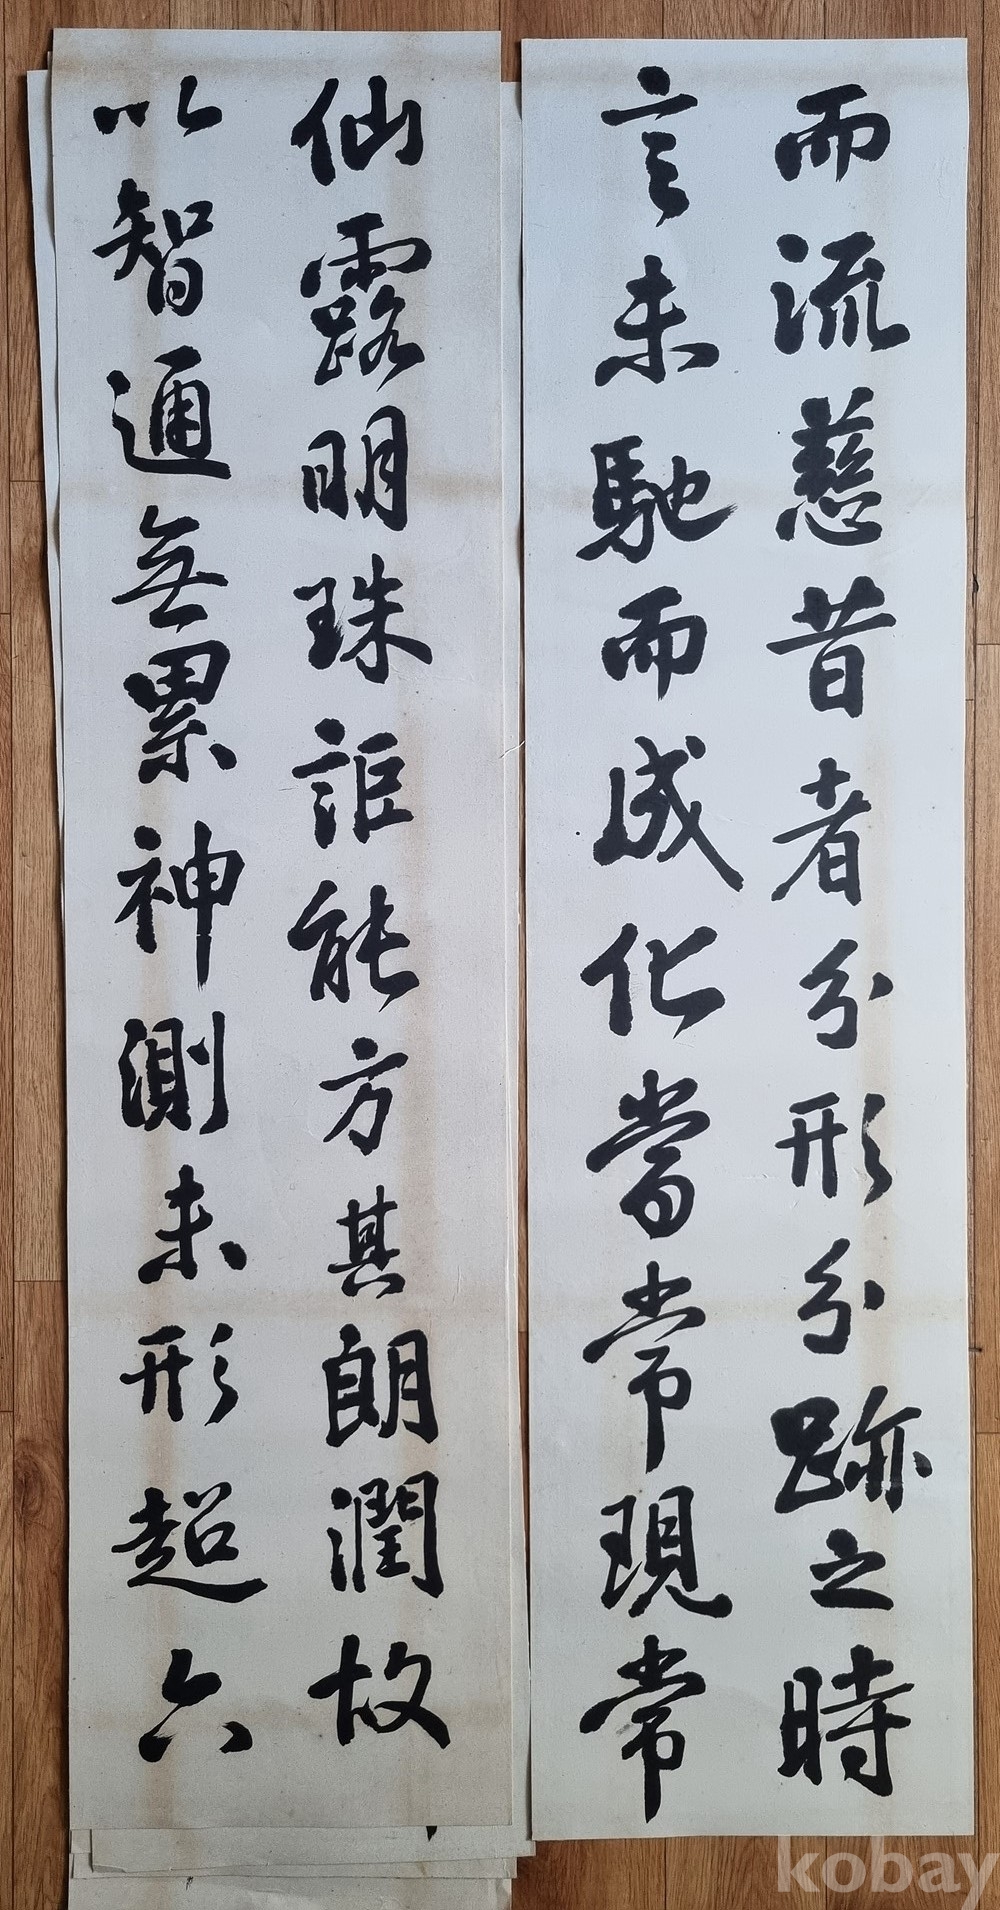 而流慈昔者分形分跡之時
言未馳而成化當常現常
仙露明珠詎能方其朗潤故
以智通無累神測未形超六
kobay